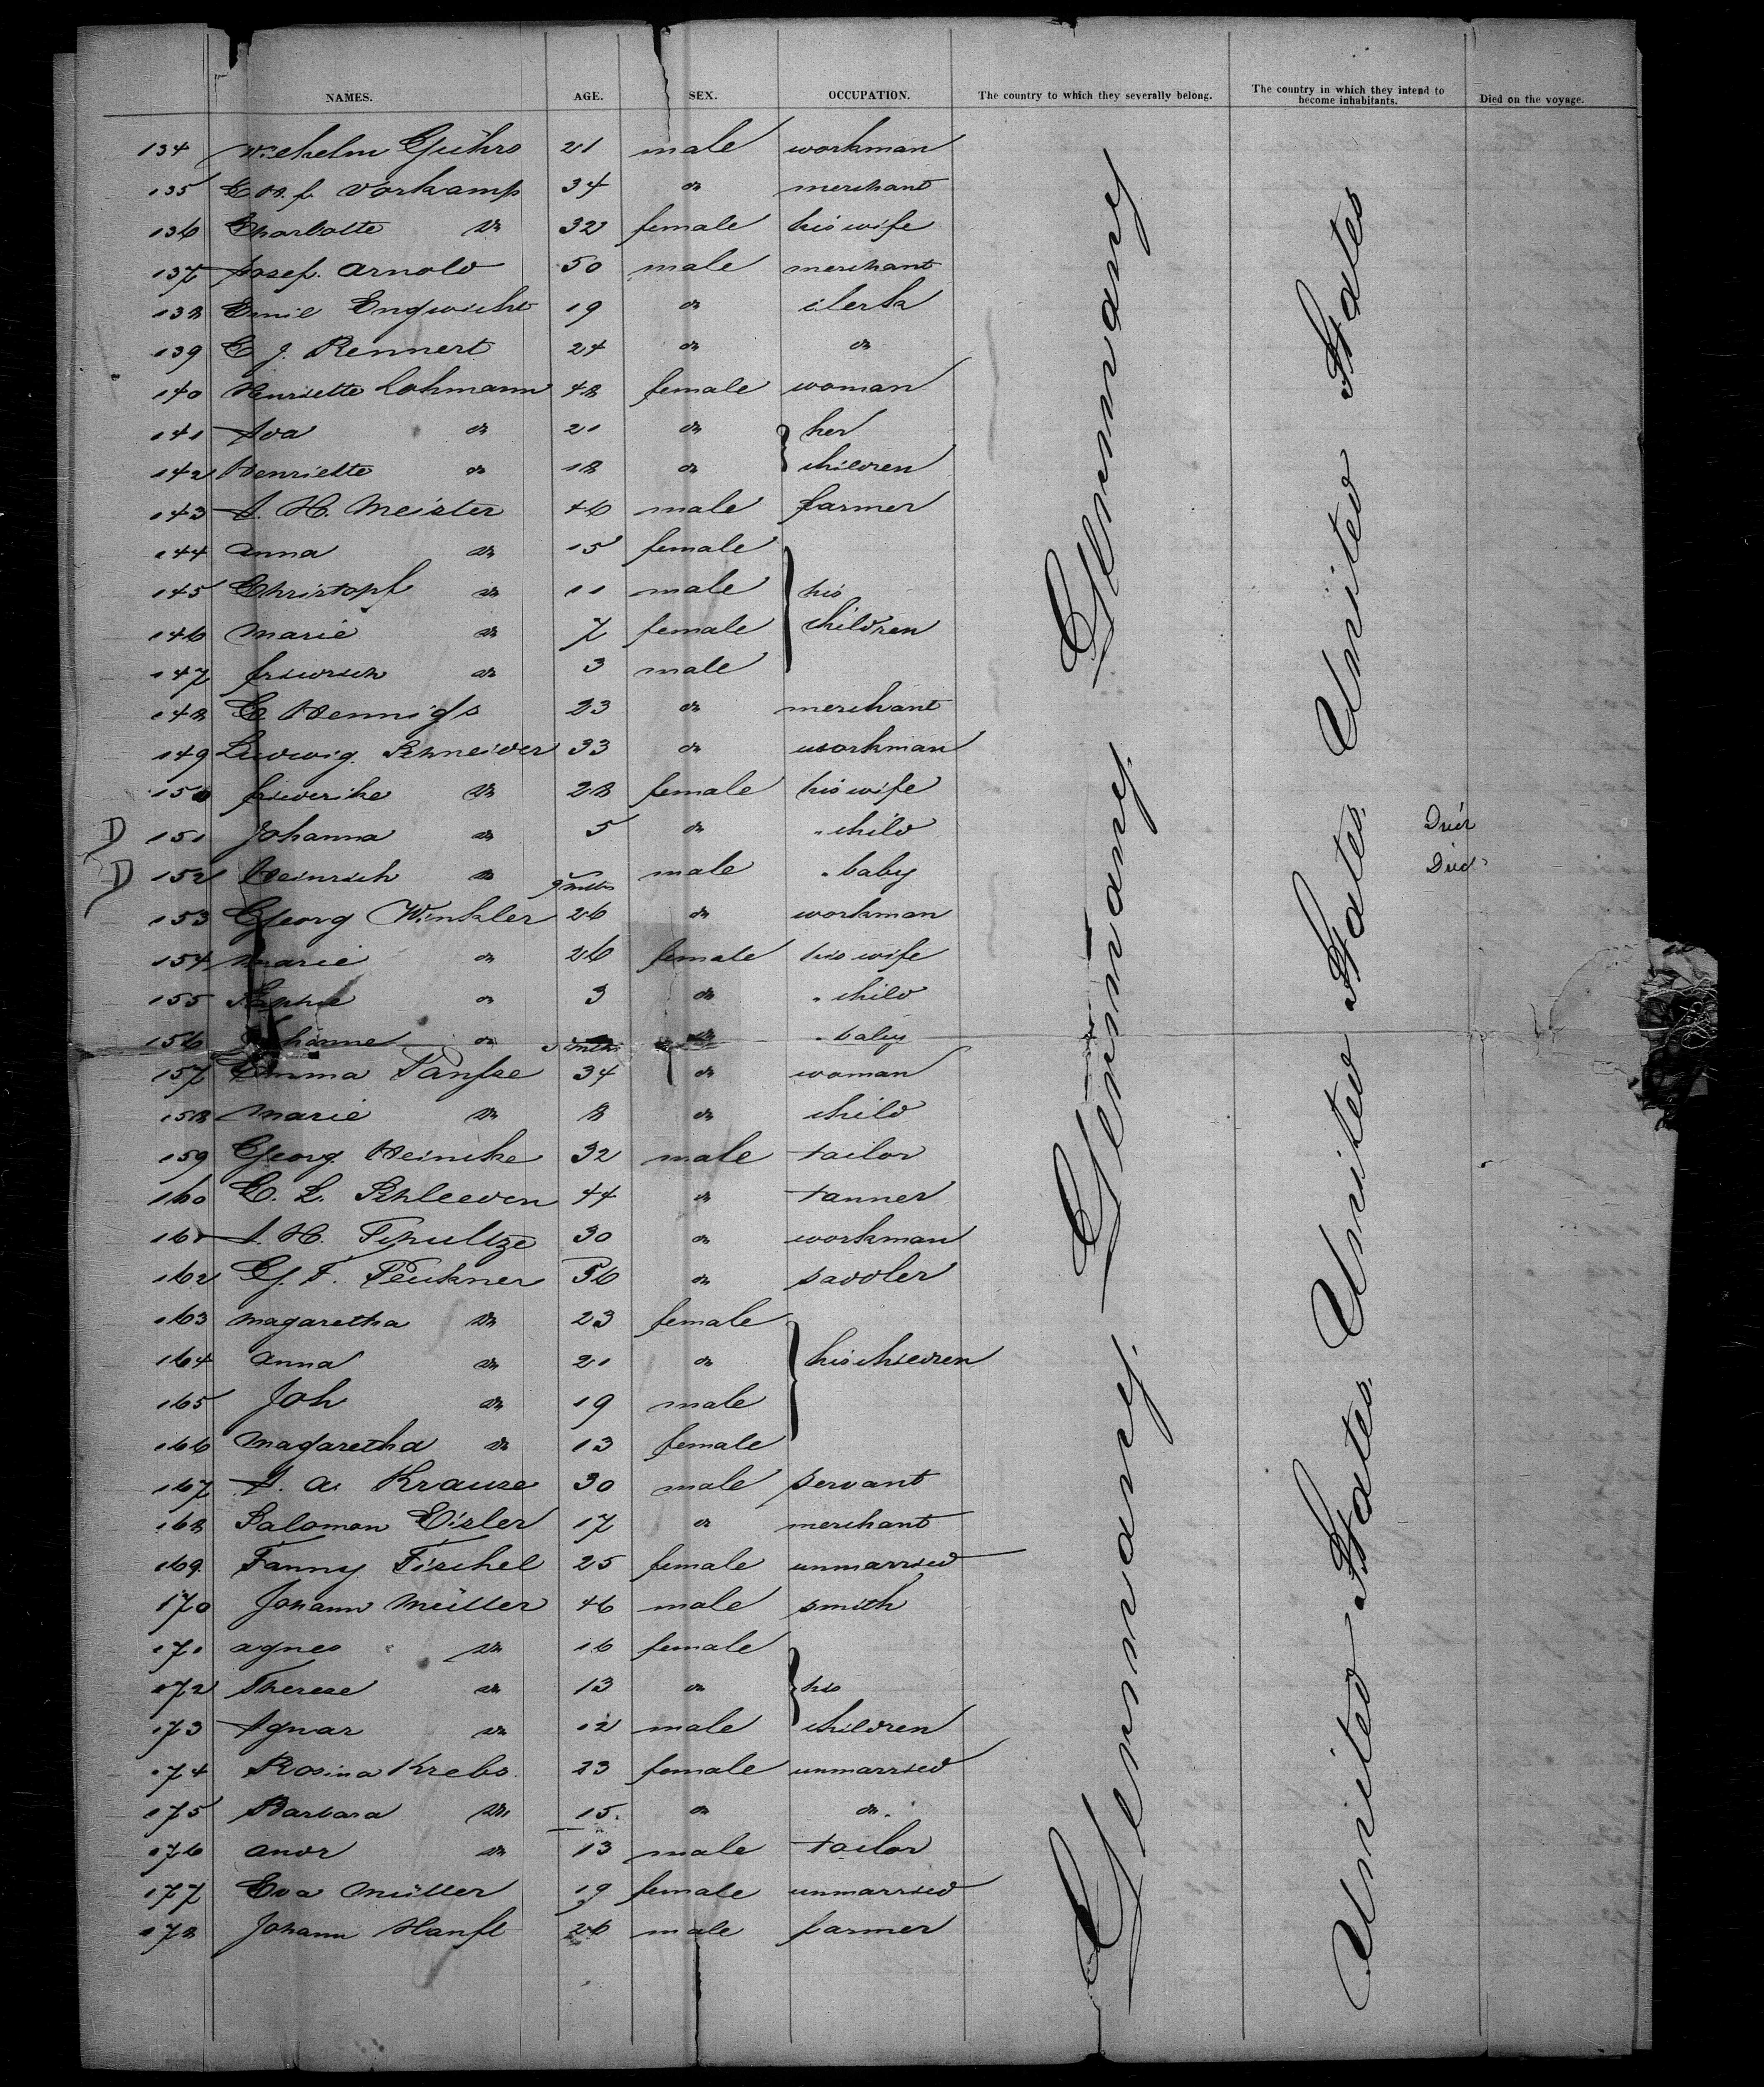 NAMES. AGE. SEX. OCCUPATION. The country to which they severally belong. The country in which they intend to become inhabitants. Died on the voyage.
134 Wilhelm Gührs 21 male workman
135 C. H. f. Vorkamp 34 do merchant
136 Charlotte do 32 female his wife
137 Josef. Arnold 50 male merchant
138 Emil Engwicht 19 do clerk
139 C J. Rennert 24 do do
140 Henriette Lohmann 48 female woman
141 Ida do 21 do her
142 Henriette do 18 do children
143 A. H. Meister 46 male farmer
144 Anna do 15 female
145 Christopf do 11 male his
146 Marie do 7 female children
147 friedrich do 3 male
148 C. Hennigs 23 do merchant
149 Ludwig. Schneider 33 do workman
150 friederike do 28 female his wife
D 151 Johanna do 5 do " child Died
D 152 Heinrich do 9 mths male " baby Died
153 Georg Winkler 26 do workman
154 Marie do 26 female his wife
155 Sophie do 3 do " child
156 do mths do " baby
157 Emma 34 do woman
158 Marie do 8 do child
159 Georg. Heinicke 32 male tailor
160 C. L. 44 do tanner
161 A. H. Schultze 30 do workman
162 G. F. Peukner 56 do saddler
163 Magaretha do 23 female
164 Anna do 21 do his children
165 Joh do 19 male
166 Magaretha do 13 female
167 A. A. Krause 30 male servant
168 Salomon Eisler 17 do merchant
169. Fanny Fischel 25 female unmarried
170 Johann Müller 46 male smith
171 Agnes do 16 female
172 Therese do 13 do his
173 Ignar do 12 male children
174 Rosina Krebs. 23 female unmarried
175 Barbara do 15. do do.
176 Andr do 13 male tailor
177 Eva Müller 19 female unmarried
178 Johann Hanfl 26 male farmer
Germany. Germany. Germany
United States United States United States